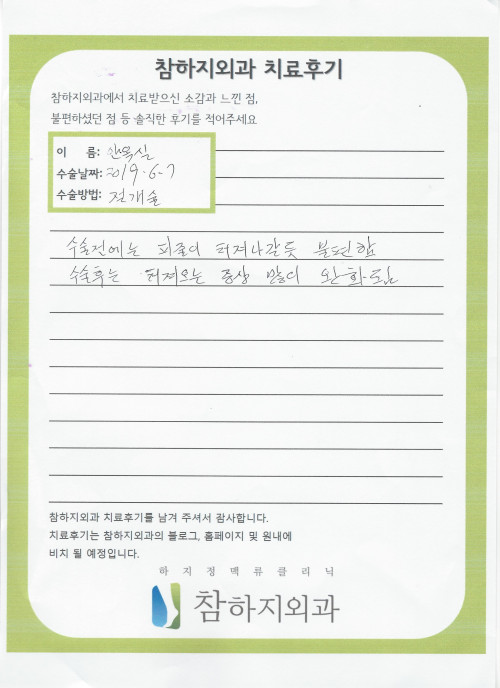 참하지외과 치료후기
참하지외과에서 치료받으신 소감과 느낀 점,
불편하셨던 점 등 솔직한 후기를 적어주세요
이 름: 안옥실
수술날짜: 2019.6.7
수술방법: 전개술
수술전에는 피줄이 터져나갈듯 불편함
수술후는 터져오는 증상 많이 완화됨
참하지외과 치료후기를 남겨 주셔서 감사합니다.
치료후기는 참하지외과의 블로그, 홈페이지 및 원내에
비치 될 예정입니다.
하지정맥류클리닉
참하지외과